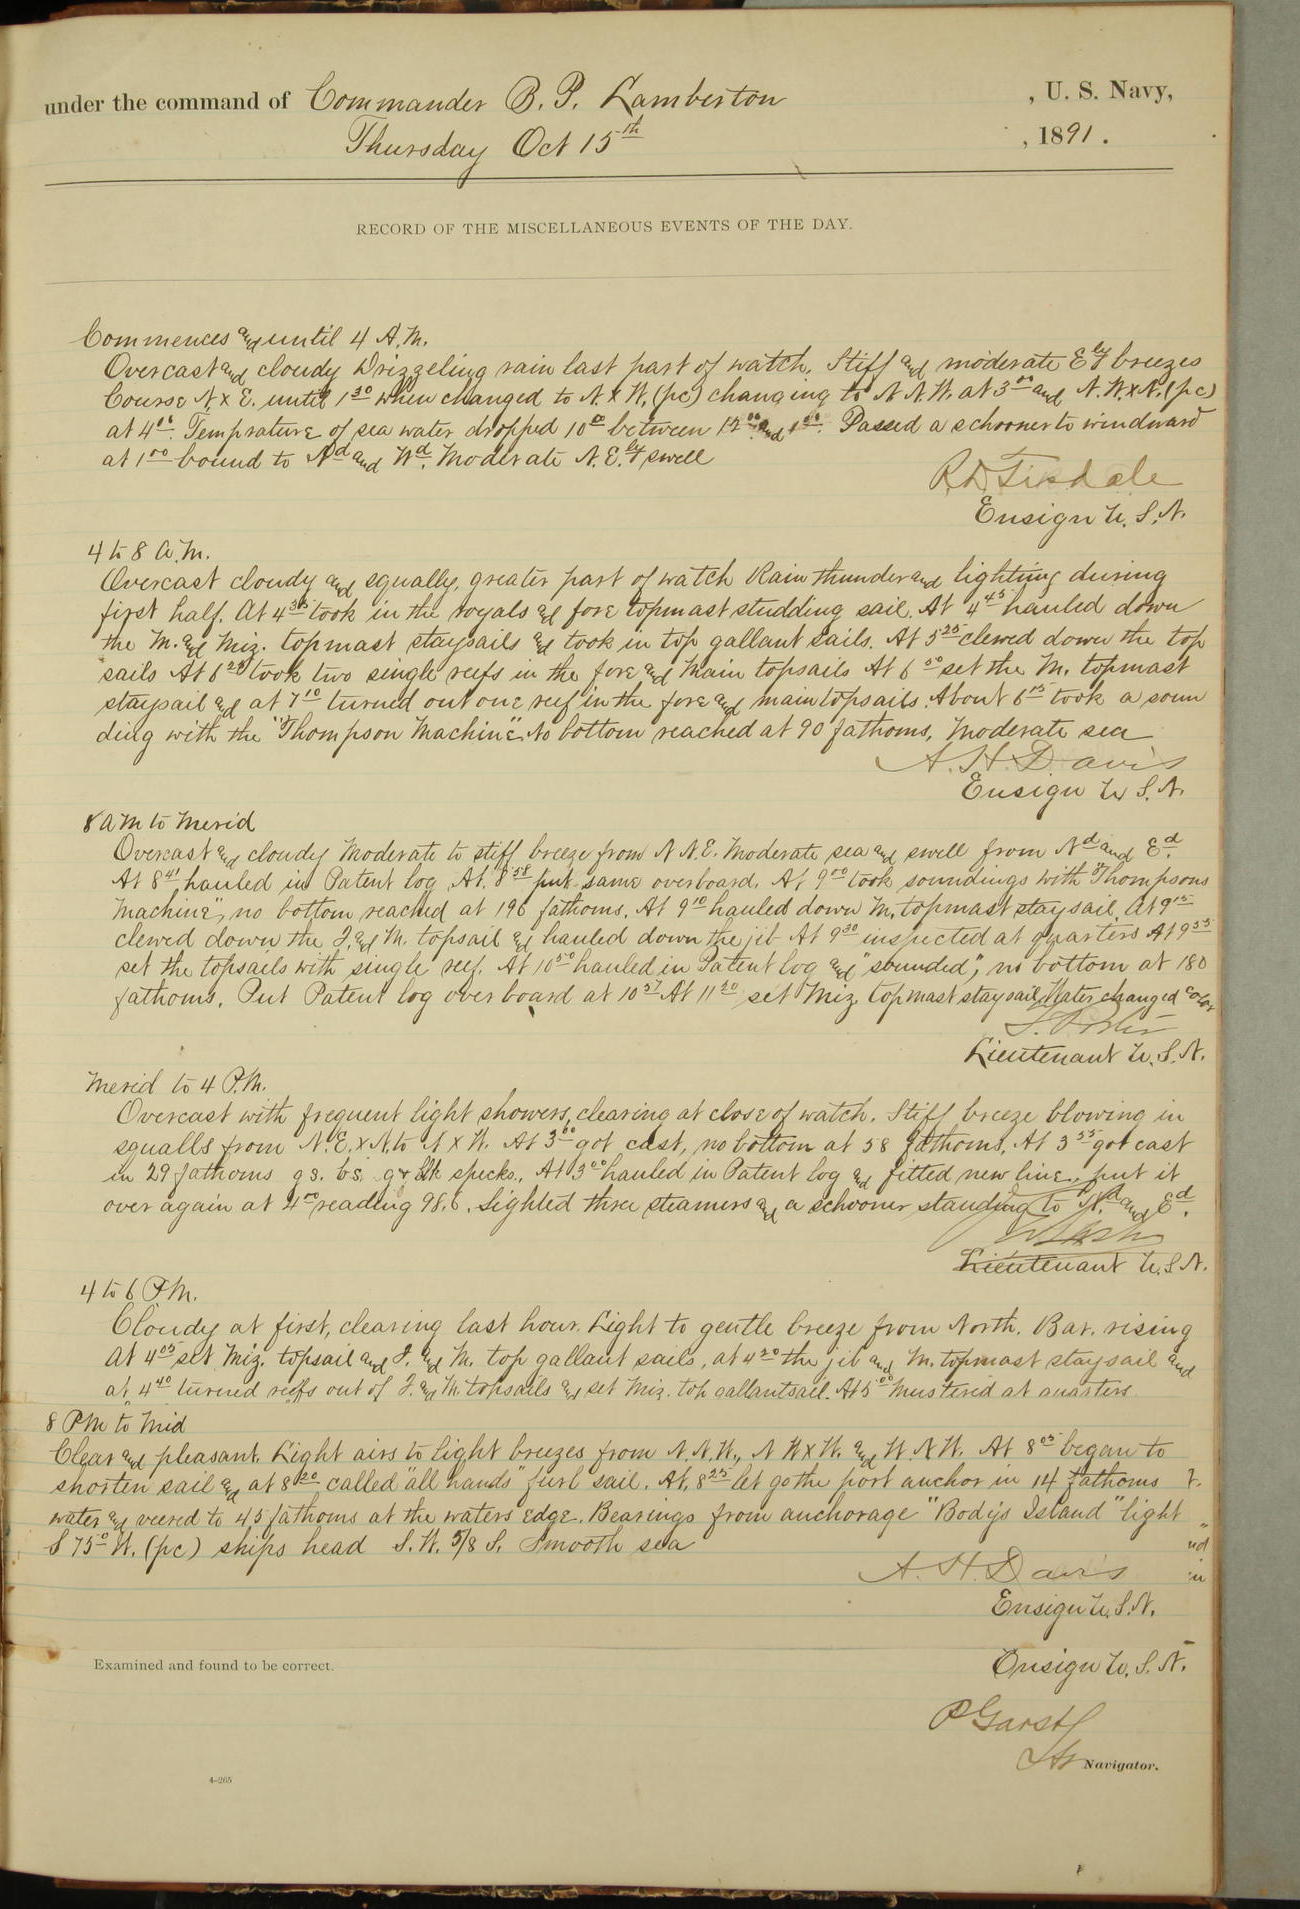 under the command of Commander B. P. Lamberton , U. S. Navy,
Thursday Oct 15th , 1891.
RECORD OF THE MISCELLANEOUS EVENTS OF THE DAY.
Commences and until 4 A.M.
Overcast and cloudy Drizzeling rain last part of watch. Stiff and moderate Ely breezes
Course N. x E. until 1 30 when changed to N. x W. (pc) changing to N N.W. at 3 00 and N.W. x N. (pc)
at 4 00. Temprature of sea water dropped 10° between 12 00 and 1 00. Passed a schooner to windward
at 1 00 bound to Nd and Wd. Moderate N.E.ly swell
R. D. Tisdale
Ensign U.S.N.
4 to 8 A.M.
Overcast cloudy and squally, greater part of watch Rain thunder and lighting during
first half. At 4 35 took in the royals and fore topmast studding sail. At 4 45 hauled down
the M. and Miz. topmast staysails and took in top gallant sails. At 5 25 clewed down the top
sails At 6 20 took two single reefs in the fore and Main topsails At 6 50 set the M. topmast
staysail and at 7 10 turned out one reef in the fore and main topsails. About 6 15 took a soun
ding with the "Thompson Machine". No bottom reached at 90 fathoms. Moderate sea
A. H. Davis
Ensign U.S.N.
8 AM to Merid
Overcast and cloudy Moderate to stiff breeze from N N.E. Moderate sea and swell from Nd and Ed.
At 8 41 hauled in Patent log. At 8 58 put same overboard. At 9 00 took soundings with "Thompsons
Machine", no bottom reached at 196 fathoms. At 9 10 hauled down M. topmast staysail. At 9 15
clewed down the F. and M. topsail and hauled down the jib At 9 30 inspected at quarters At 9 55
set the topsails with single reef. At 10 50 hauled in Patent log and "sounded", no bottom at 180
fathoms. Put Patent log over board at 10 57 At 11 20 set Miz. topmast staysail, Water changed color
Lieutenant U.S.N.
Merid to 4 P.M.
Overcast with frequent light showers, clearing at close of watch. Stiff breeze blowing in
squalls from N.E. x N. to N x W. At 3 00 got cast, no bottom at 58 fathoms. At 3 55 got cast
in 29 fathoms gs. bs. gr blk specks. At 3 00 hauled in Patent log and fitted new line, put it
over again at 4 00 reading 98.6. Sighted three steamers and a schooner standing to Nd and Ed.
Lieutenant U.S.N.
4 to 6 P.M.
Cloudy at first, clearing last hour. Light to gentle breeze from North. Bar. rising
At 4 05 set Miz. topsail and F. and M. top gallant sails, at 4 20 the jib and M. topmast staysail and
at 4 40 turned reefs out of F. and M. topsails and set Miz. top gallantsail. At 5 00 mustered at quarters
8 PM to Mid
Clear and pleasant. Light airs to light breezes from N.N.W., N W x W. and W.N.W. At 8 05 began to
shorten sail and at 8 20 called "all hands" furl sail. At 8 25 let go the port anchor in 14 fathoms
water and veered to 45 fathoms at the waters edge. Bearings from anchorage "Bodys Island" light
S 75° W. (pc) ships head S.W. 5/8 S. Smooth sea
A. H. Davis
Ensign U.S.N.
Ensign U.S.N.
Examined and found to be correct.
P Garst
Navigator.
4-265